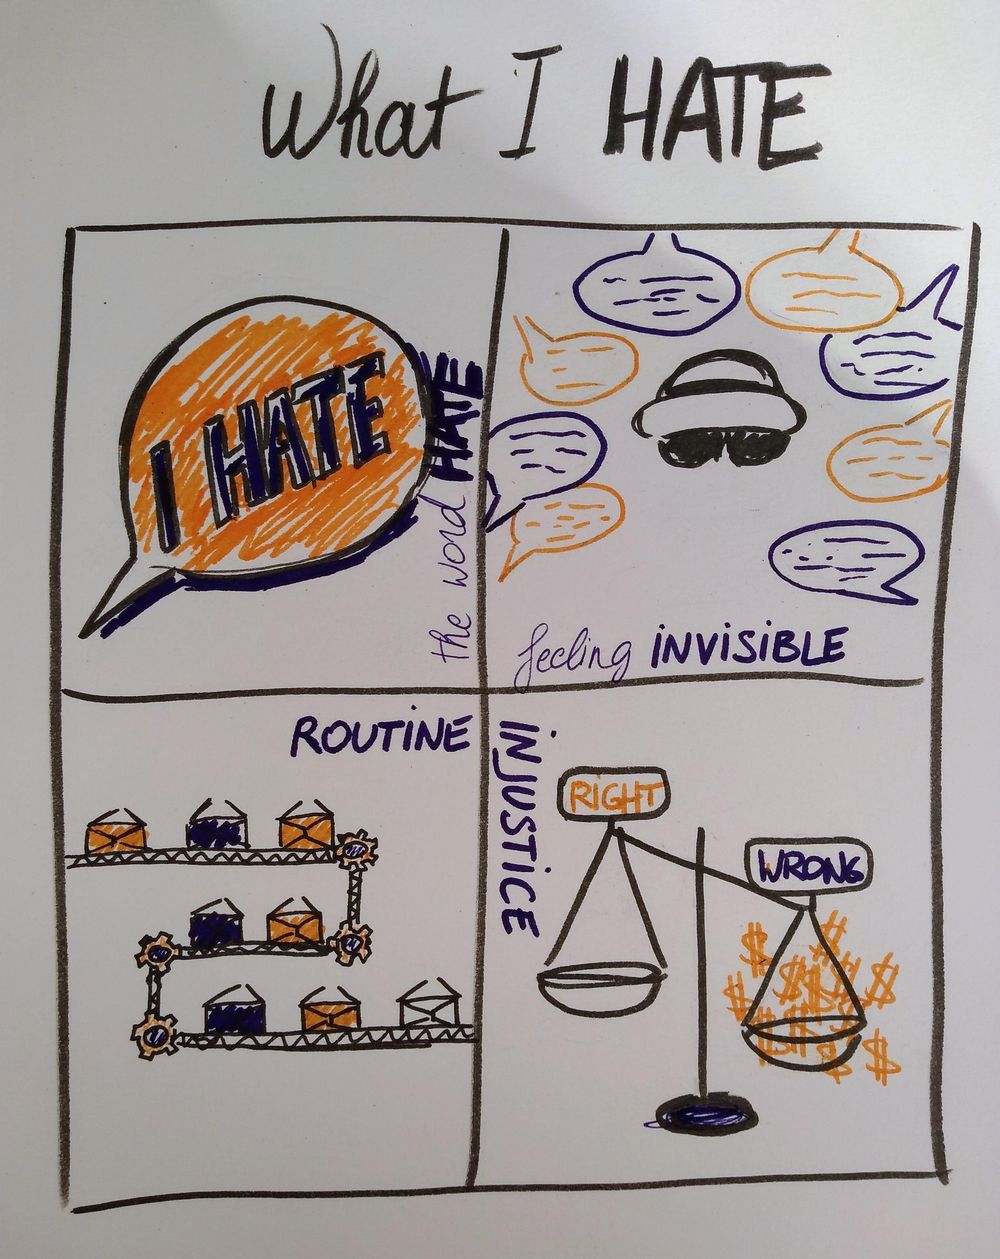 What I HATE
I HATE
the word HATE
feeling INVISIBLE
ROUTINE
INJUSTICE
RIGHT
WRONG
$ $ $ $ $ $ $ $ $ $ $ $